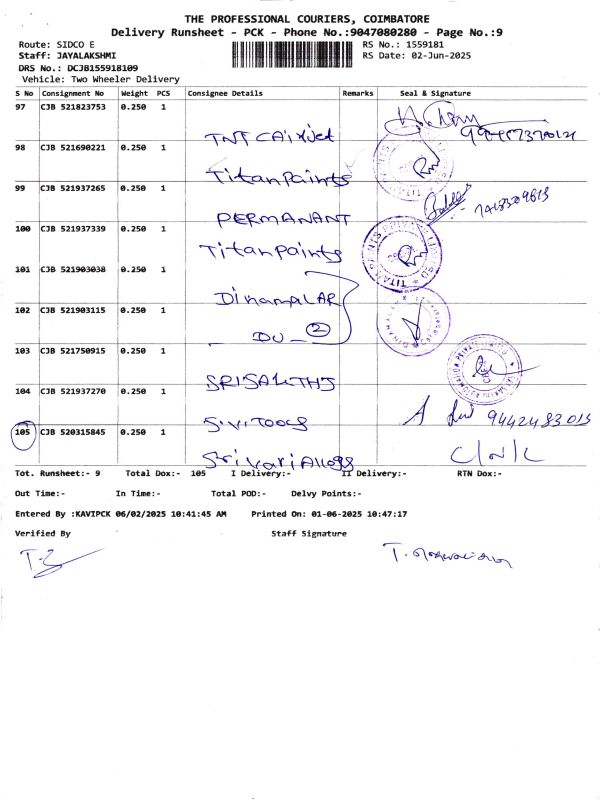 THE PROFESSIONAL COURIERS, COIMBATORE
Delivery Runsheet - PCK - Phone No.:9047080280 - Page No.:9
Route: SIDCO E RS No.: 1559181
Staff: JAYALAKSHMI RS Date: 02-Jun-2025
DRS No.: DCJB155918109
Vehicle: Two Wheeler Delivery
S No Consignment No Weight PCS Consignee Details Remarks Seal & Signature
97 CJB 521823753 0.250 1
TNT
98 CJB 521690221 0.250 1
Titan Paints
99 CJB 521937265 0.250 1
PERMANANT
100 CJB 521937339 0.250 1
Titan Paints
101 CJB 521903038 0.250 1
DinamaLAR
102 CJB 521903115 0.250 1
DU - 2
103 CJB 521750915 0.250 1
SRISAKTHI
104 CJB 521937270 0.250 1
S.V.TOOLS 9442483013
105 CJB 520315845 0.250 1
Srivari Alloys C/N/C
Tot. Runsheet:- 9 Total Dox:- 105 I Delivery:- II Delivery:- RTN Dox:-
Out Time:- In Time:- Total POD:- Delvy Points:-
Entered By :KAVIPCK 06/02/2025 10:41:45 AM Printed On: 01-06-2025 10:47:17
Verified By Staff Signature